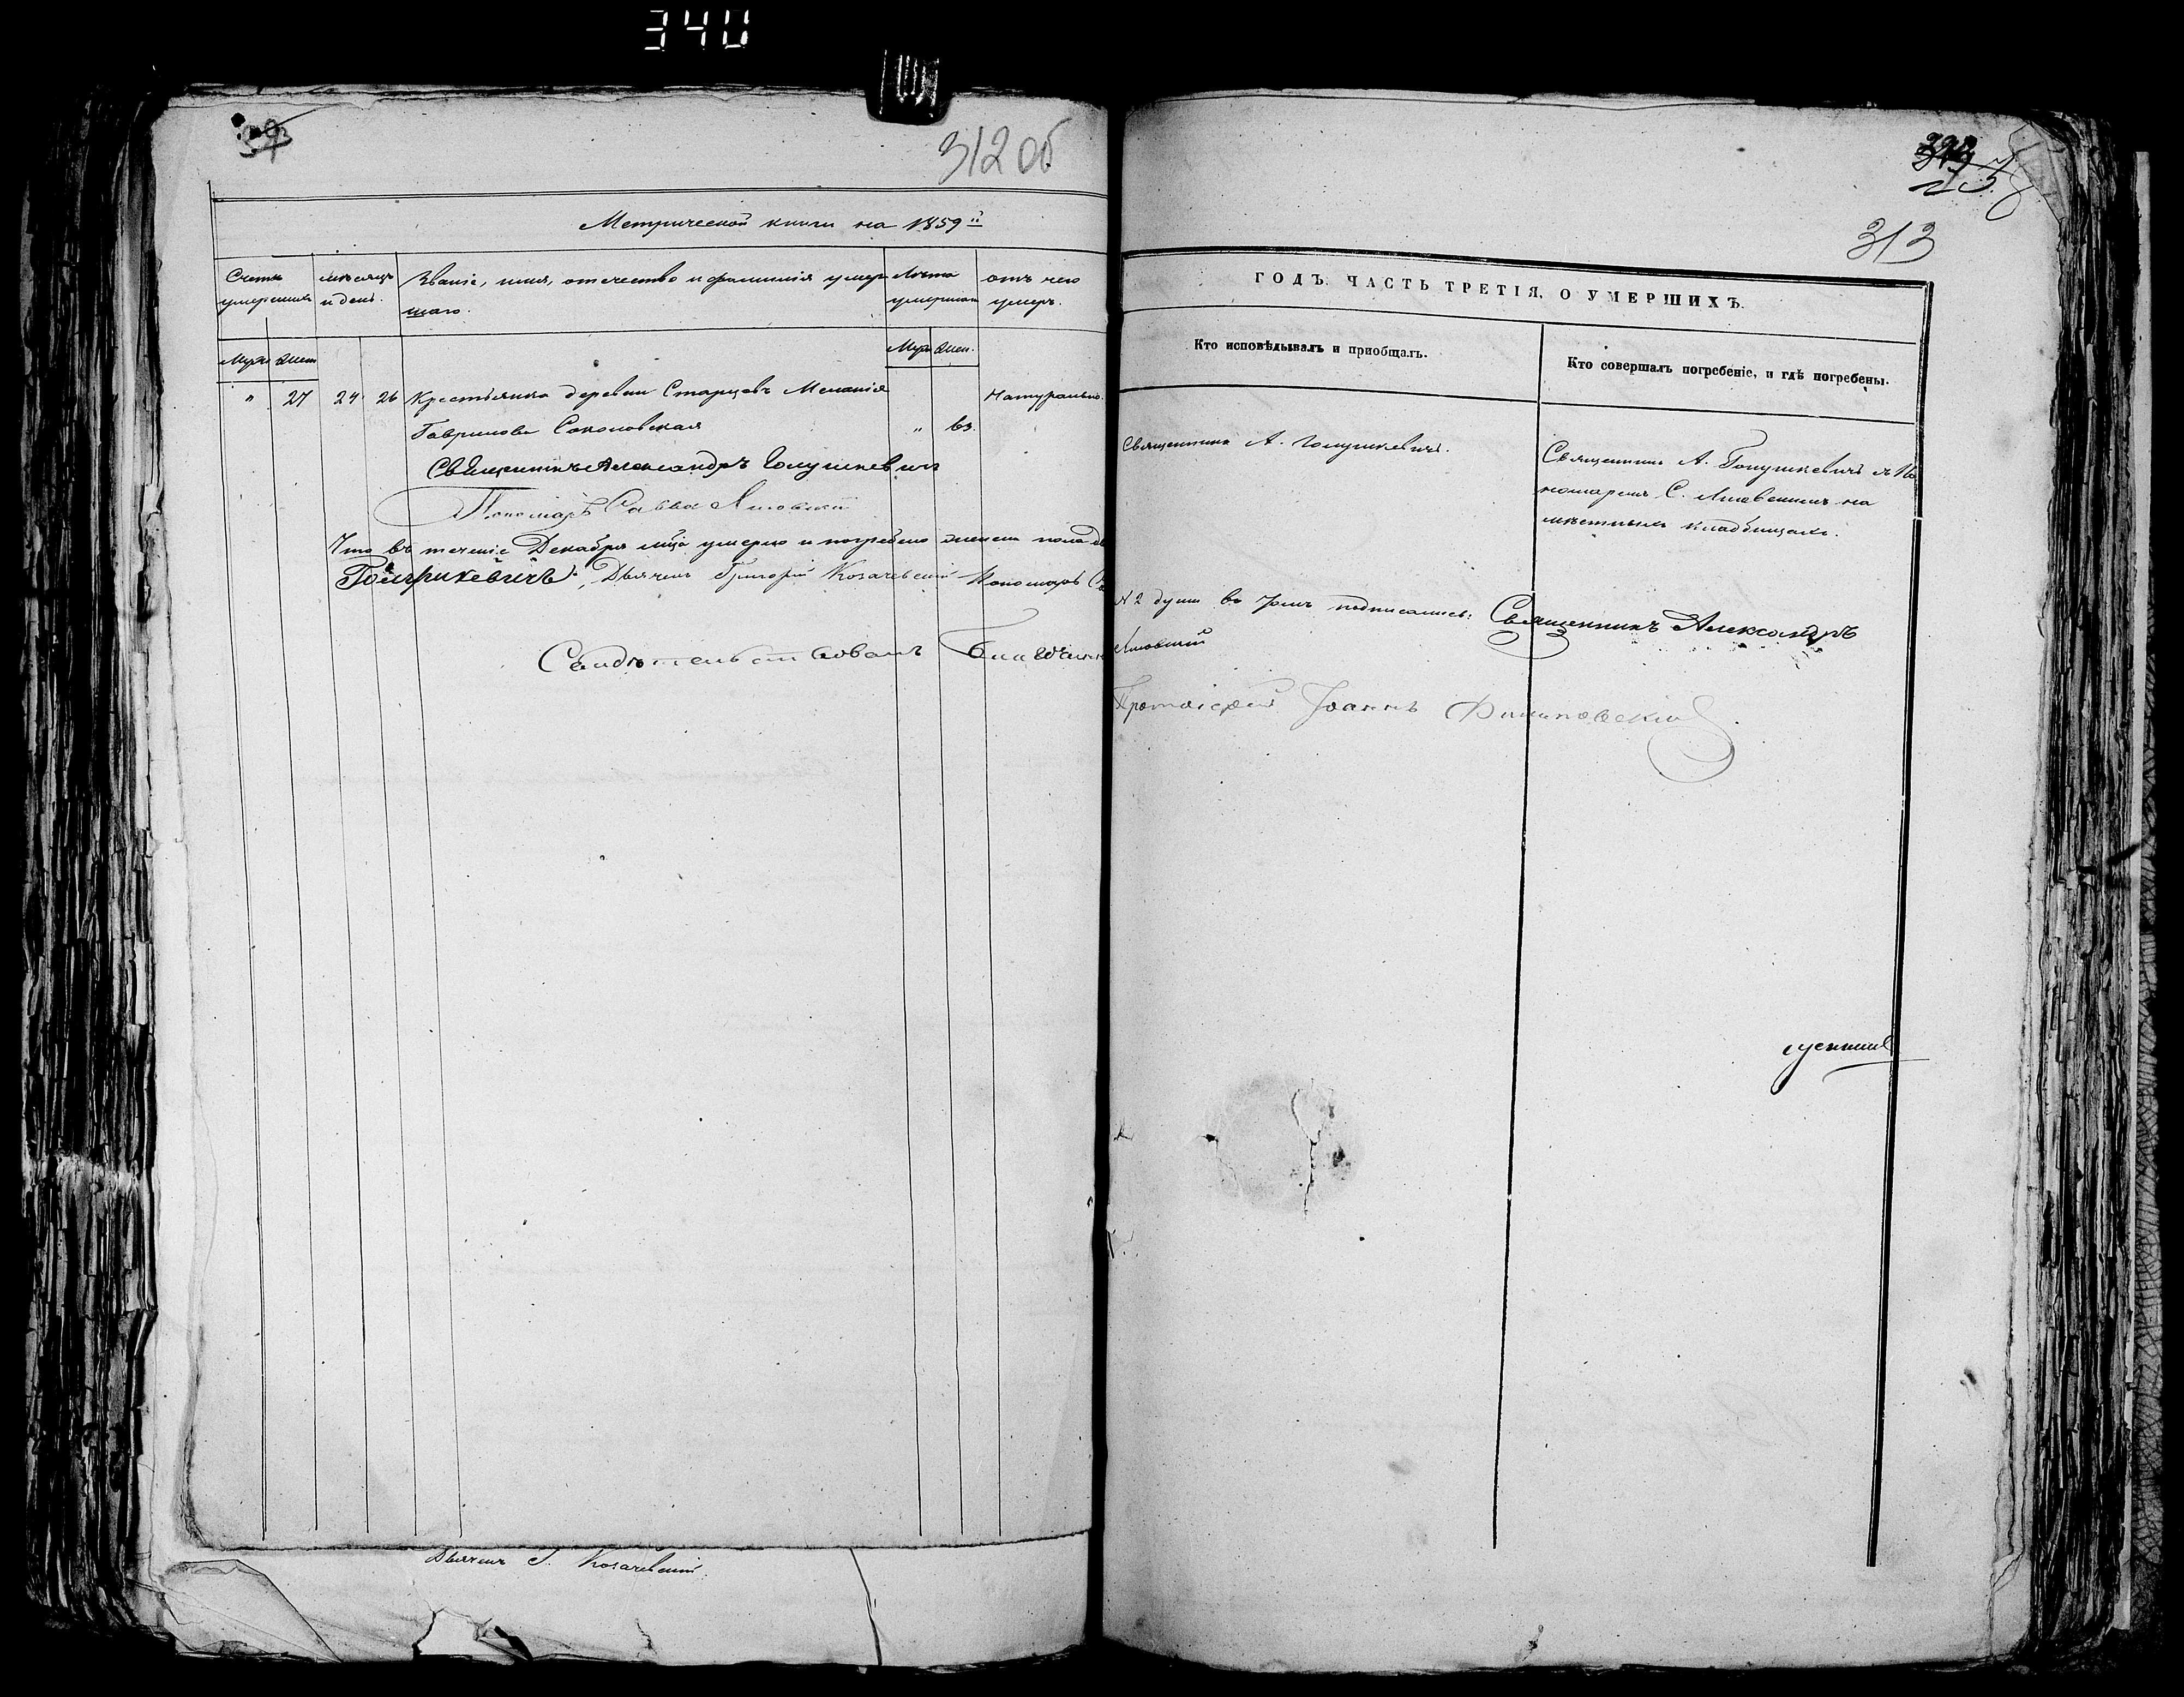 340
312 об
Метрической книги на 1859й
Счетъ умершихъ
мѣсяцъ и день.
Званіе, имя, отчество и фамилія умер
шаго.
Лѣта умершаго
отъ чего умеръ.
Муж Жен
Муж Жен.
" 27 24 26 Крестьянка деревни Старцевъ Меланія Натурально.
Гаврилова Соколовская " 63.
Священникъ Александръ Голушкевичъ
Пономарь Савва Яновскій
Что въ теченіе Декабря мца умерло и погребено женска пола
Дьячекъ Григорій Козачевскій Пономарь
Свидѣтельствовалъ
Дьячекъ Г. Козачевскій.
313
ГОДЪ. ЧАСТЬ ТРЕТІЯ, О УМЕРШИХЪ.
Кто исповѣдывалъ и пріобщалъ.
Кто совершалъ погребеніе, и гдѣ погребены.
Священникъ А. Голушкевичъ.
Священникъ А. Голушкевичъ съ По
номаремъ С. Яновскимъ на
мѣстныхъ кладбищахъ.
2 души въ томъ подписались: Священникъ Александръ
Яновскій
Протоіерей Іоаннъ